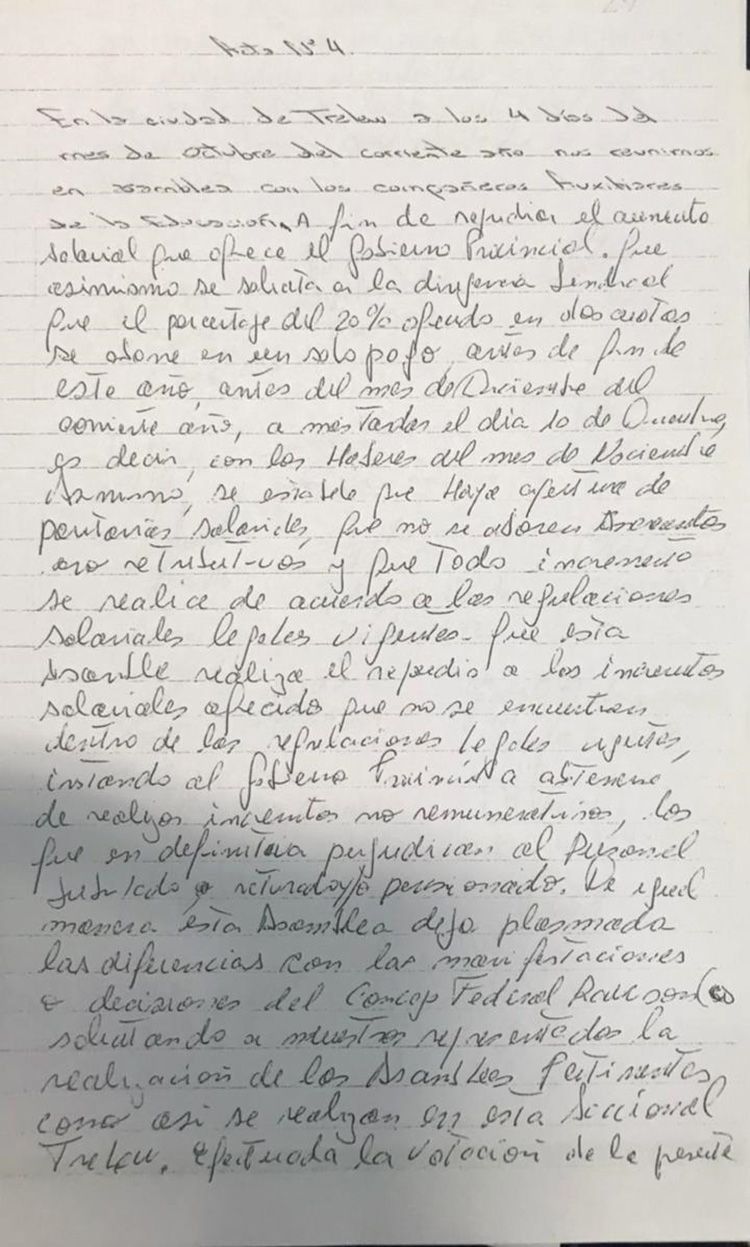 Acta N° 4.
En la ciudad de Trelew a los 4 días del
mes de Octubre del corriente año nos reunimos
en asamblea con los compañeros Auxiliares
de la Educación, A fin de repudiar el aumento
salarial que ofrece el Gobierno Provincial. Que
asimismo se solicita a la dirigencia Sindical
que el porcentaje del 20% ofrecido en dos cuotas
se abone en un solo pago, antes de fin de
este año, antes del mes de Diciembre del
corriente año, a más tardar el día 10 de Diciembre,
es decir, con los Haberes del mes de Noviembre
Asimismo, se establece que Haya apertura de
paritarias salariales, que no se abonen Aumentos
no retributivos y que Todo incremento
se realice de acuerdo a las regulaciones
salariales legales vigentes. Que esta
Asamblea realiza el repudio a los incrementos
salariales ofrecido que no se encuentran
dentro de las regulaciones legales vigentes,
instando al Gobierno Provincial a abstenerse
de realizar incrementos no remunerativos, los
que en definitiva perjudican al Personal
Jubilado o retirado y/o pensionado. De igual
manera esta Asamblea deja plasmada
las diferencias con las manifestaciones
o decisiones del Consejo Federal Rawson
solicitando a nuestros representados la
realización de las Asambleas Pertinentes,
como así se realizan en esta Seccional
Trelew. Efectuada la Votación de la presente